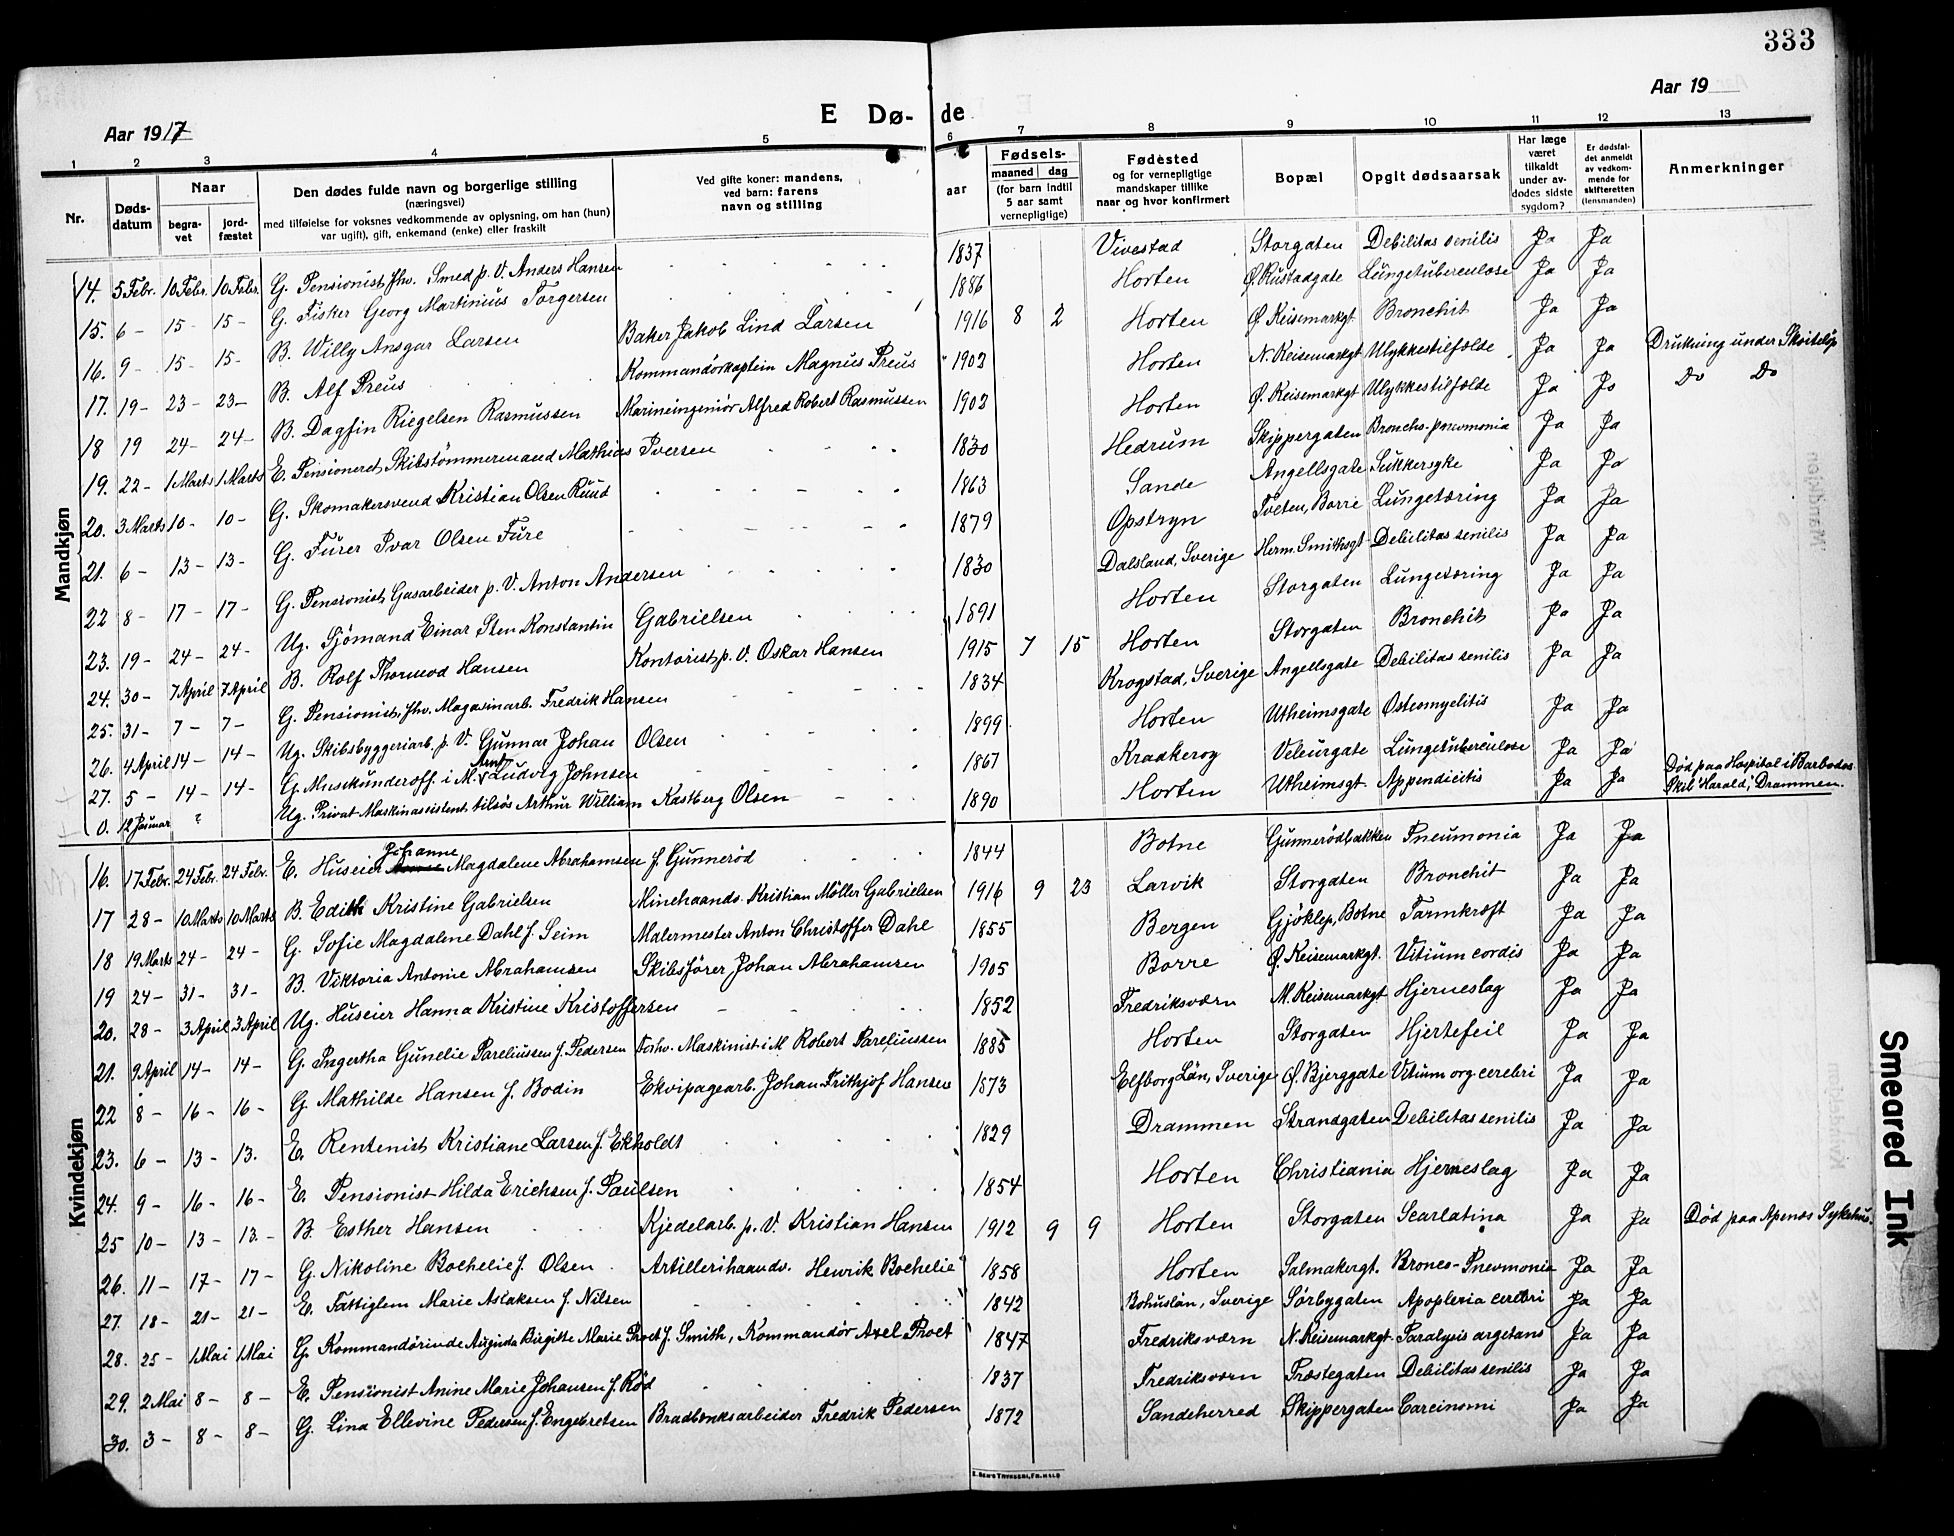 333
Aar 1917
E Dø- de
Aar 19
1 2 3 4 5 6 7 8 9 10 11 12 13
Nr.
Døds-
datum
Naar
begra-
vet
jord-
fæstet
Den dødes fulde navn og borgerlige stilling
(næringsvei)
med tilføielse for voksnes vedkommende av oplysning, om han (hun)
var ugift), gift, enkemand (enke) eller fraskilt
Ved gifte koner: mandens,
ved barn: farens
navn og stilling
Fødsels-
aar
maaned dag
(for barn indtil
5 aar samt
vernepligtige)
Fødested
og for vernepligtige
mandskaper tillike
naar og hvor konfirmert
Bopæl
Opgit dødsaarsak
Har læge
været
tilkaldt
under av-
dødes sidste
sygdom?
Er dødsfal-
det anmeldt
av vedkom-
mende for
skifteretten
(lensmanden)
Anmerkninger
Mandkjøn
14. 5 Febr. 10 Febr. 10 Febr. G. Pensionist fhv. Smed p. V. Anders Hansen 1837 Vivestad Storgaten Debilitas senilis Ja Ja
15. 6 - 15 - 15 - G. Fisker Georg Martinius Torgersen 1886 Horten Ø. Rustadgate Lungetuberculose Ja Ja
16. 9 - 15 - 15 - B. Willy Ansgar Larsen Baker Jakob Lind Larsen 1916 8 2 Horten Ø. Keisemarkgt Bronchit Ja Ja
17. 19 - 23 - 23 - B. Alf Preus Kommandørkaptein Magnus Preus 1902 Horten N. Keisemarkgt Ulykkestilfælde Ja Ja Drukning under Skøiteløp
18 19 24 - 24 - B. Dagfin Riegelsen Rasmussen Marineingeniör Alfred Robert Rasmussen 1902 Horten Ø. Keisemarkgt Ulykkestilfælde Ja Ja Do Do
19. 22 - 1 Marts 1 Marts E. Pensioneret Skibstömmermand Mathias Iversen 1830 Hedrum Skippergaten Broncho-pneumonia Ja Ja
20. 3 Marts 10 - 10 - G. Skomakersvend Kristian Olsen Ruud 1863 Sande Angellsgate Sukkersyke Ja Ja
21. 6 - 13 - 13 - G. Furer Ivar Olsen Fure 1879 Opstryn Tveten, Borre Lungetæring Ja Ja
22 8 - 17 - 17 - G. Pensionist Gasarbeider p. V. Anton Andersen 1830 Dalsland, Sverige Herm. Smithsgt Debilitas senilis Ja Ja
23. 19 - 24 - 24 - Ug. Sjömand Einar Sten Konstantin Gabrielsen 1891 Horten Storgaten Lungetæring Ja Ja
24. 30 - 7 April 7 April B. Rolf Thormod Hansen Kontorist p. V. Oskar Hansen 1915 7 15 Horten Storgaten Bronchit Ja Ja
25. 31 - 7 - 7 - G. Pensionist, fhv. Magasinarb. Fredrik Hansen 1834 Krogstad, Sverige Angellsgate Debilitas senilis Ja Ja
26. 4 April 14 - 14 - Ug. Skibsbyggeriarb. p. V. Gunnar Johan Olsen 1899 Horten Utheimsgate Osteomyelitis Ja Ja
27. 5 - 14 - 14 - G. Musikunderoff. i M. Arnt Ludvig Johnsen 1867 Kraakerøy Veleurgate Lungetuberculose Ja Ja
0. 12 Januar ? Ug. Privat Maskinassistent tilsös Arthur William Kastberg Olsen 1890 Horten Utheimsgt. Appendicitis Ja Ja Død paa Hospital i Barbados
Skib "Harald", Drammen.
Kvindekjøn
16. 17 Febr. 24 Febr. 24 Febr. E. Huseier Johanne Magdalene Abrahamsen f. Gunnerød 1844 Botne Gunnerødbakken Pneumonia Ja Ja
17 28 - 10 Marts 10 Marts B. Edith Kristine Gabrielsen Minehaands. Kristian Möller Gabrielsen 1916 9 23 Larvik Storgaten Bronchit Ja Ja
18 19 Marts 24 - 24 - G. Sofie Magdalene Dahl f. Seim Malermester Anton Christoffer Dahl 1855 Bergen Gjöklep, Botne Tarmkræft Ja Ja
19 24 - 31 - 31 - B. Viktoria Antonie Abrahamsen Skibsfører Johan Abrahamsen 1905 Borre Ø. Keisemarkgt. Vitium cordis Ja Ja
20. 28 - 3 April 3 April Ug. Huseier Hanna Kristine Kristoffersen 1852 Fredriksværn M. Keisemarkgt Hjerneslag Ja Ja
21. 9 April 14 - 14 - G. Ingertha Gunelie Pareliussen f. Pedersen Forhv. Maskinist i M Robert Pareliussen 1885 Horten Storgaten Hjertefeil Ja Ja
22 8 - 16 - 16 - G. Mathilde Hansen f. Bodin Ekvipagearb. Johan Frithjof Hansen 1873 Elfborg Län, Sverige Ø. Bjerggate Vitium org. cerebri Ja Ja
23. 6 - 13 - 13. E. Rentenist Kristiane Larsen f. Ekholdt 1829 Drammen Strandgaten Debilitas senilis Ja Ja
24. 9 - 16 - 16 - E. Pensionist Hilda Erichsen f. Paulsen 1854 Horten Christiania Hjerneslag Ja Ja
25 10 - 13 - 13 - B. Esther Hansen Kjedelarb. p. V. Kristian Hansen 1912 9 9 Horten Storgaten Scarlatina Ja Ja Død paa Apenæs Sykehus.
26. 11 - 17 - 17 - G. Nikoline Bochelie f. Olsen Artillerihaands. Henrik Bochelie 1858 Horten Salmakergt. Bronco-Pnevmonia Ja Ja
27. 18 - 21 - 21 - E. Fattiglem Marie Aslaksen f. Nilsen 1842 Bohuslän, Sverige Sörbygaten Apoplexia cerebri Ja Ja
28. 25 - 1 Mai 1 Mai G. Kommandörinde Auginda Birgitte Marie Proet f. Smith, Kommandör Axel Proet 1847 Fredriksværn N. Keisemarkgt. Paralysis argetans Ja Ja
29. 2 Mai 8 - 8 - E. Pensionist Anine Marie Johansen f. Rød 1837 Fredriksværn Præstegaten Debilitas senilis Ja Ja
30. 3 - 8 - 8 - G. Lina Ellevine Pedersen f. Engebretsen Bradbænksarbeider Fredrik Pedersen 1872 Sandeherred Skippergaten Carcinomi Ja Ja
Smeared Ink